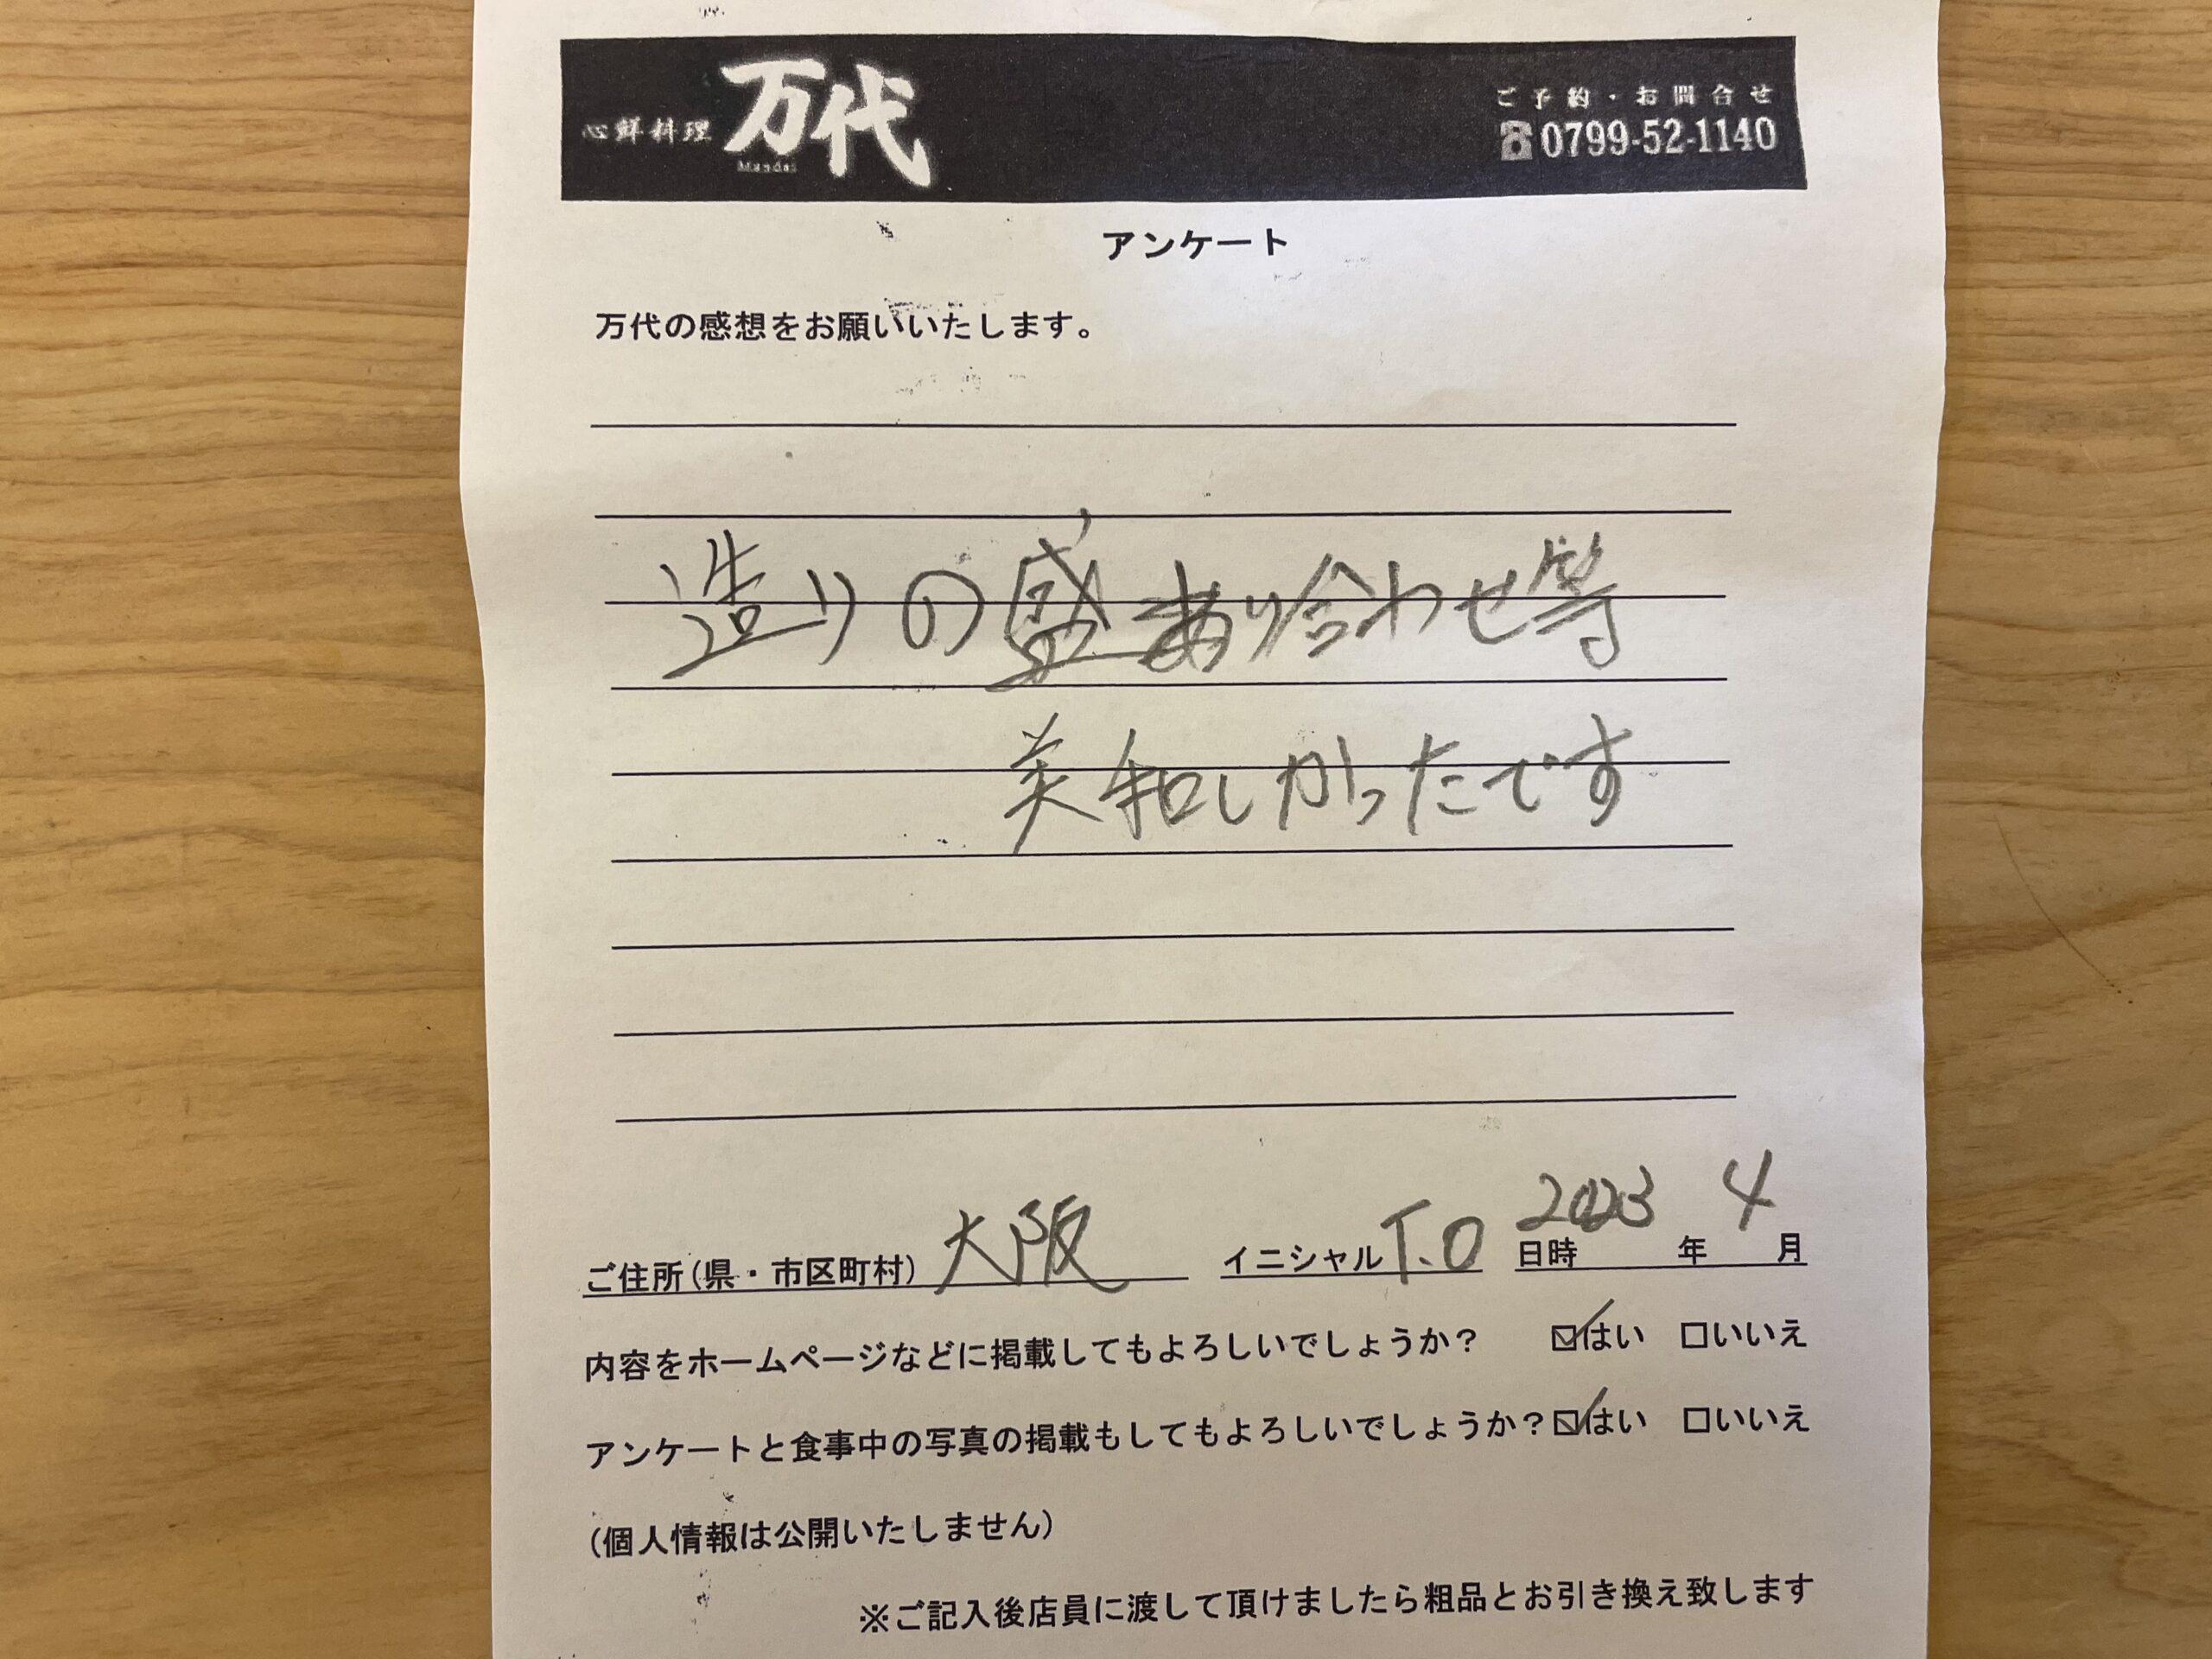 心鮮料理 万代 Mandai
ご予約・お問合せ
☎0799-52-1140
アンケート
万代の感想をお願いいたします。
造りの盛り合わせ等
美和しかったです
ご住所(県・市区町村) 大阪 イニシャル T.O 日時 2023 年 4 月
内容をホームページなどに掲載してもよろしいでしょうか? ☑はい □いいえ
アンケートと食事中の写真の掲載もしてもよろしいでしょうか? ☑はい □いいえ
(個人情報は公開いたしません)
※ご記入後店員に渡して頂けましたら粗品とお引き換え致します